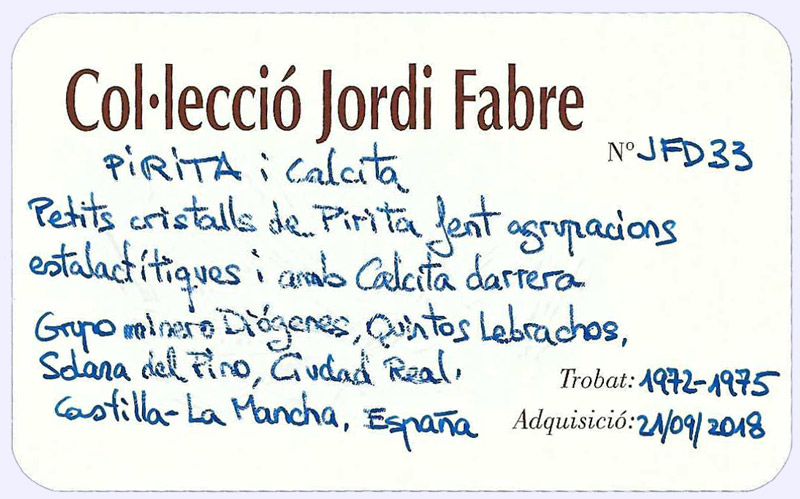 Col·lecció Jordi Fabre
Nº JFD33
PiRiTA i Calcita
Petits cristalls de Pirita fent agrupacions
estalactítiques i amb Calcita darrera
Grupo minero Diógenes, Quintos Lebrachos,
Solana del Pino, Ciudad Real,
Trobat: 1972-1975
Castilla-La Mancha, España
Adquisició: 21/09/2018